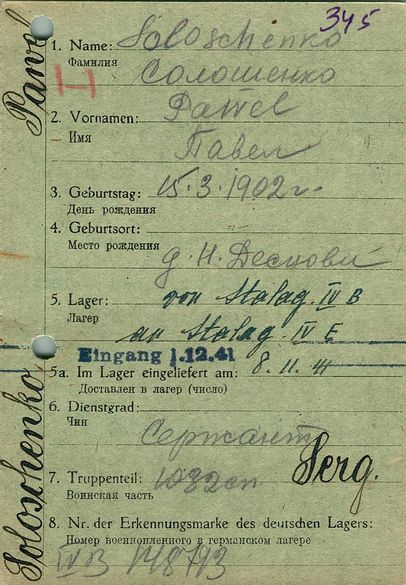 345
Pawel
Soloschenko
1. Name: Soloschenko
Фамилия
Солошенко
2. Vornamen: Pawel
Имя
Павел
3. Geburtstag: 15.3.1902г.
День рождения
4. Geburtsort:
Место рождения
д. Н.
5. Lager: von Stalag IV B
Лагер
an Stalag IV E
Eingang 1.12.41
5a. Im Lager eingeliefert am: 8.11.41
Доставлен в лагер (число)
6. Dienstgrad:
Чин
Сержант
Serg.
7. Truppenteil: 1032сп
Воинская часть
8. Nr. der Erkennungsmarke des deutschen Lagers:
Номер военнопленного в германском лагере
IVB